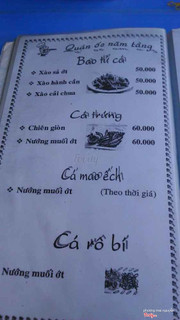 Quán ốc năm tầng
Bao tử cá
❖ Xào sả ớt 50.000
❖ Xào hành cần 50.000
❖ Xào cải chua 50.000
Cá trứng
❖ Chiên giòn 60.000
❖ Nướng muối ớt 60.000
Cá mao ếch
❖ Nướng muối ớt (Theo thời giá)
Cá rô bi
Nướng muối ớt